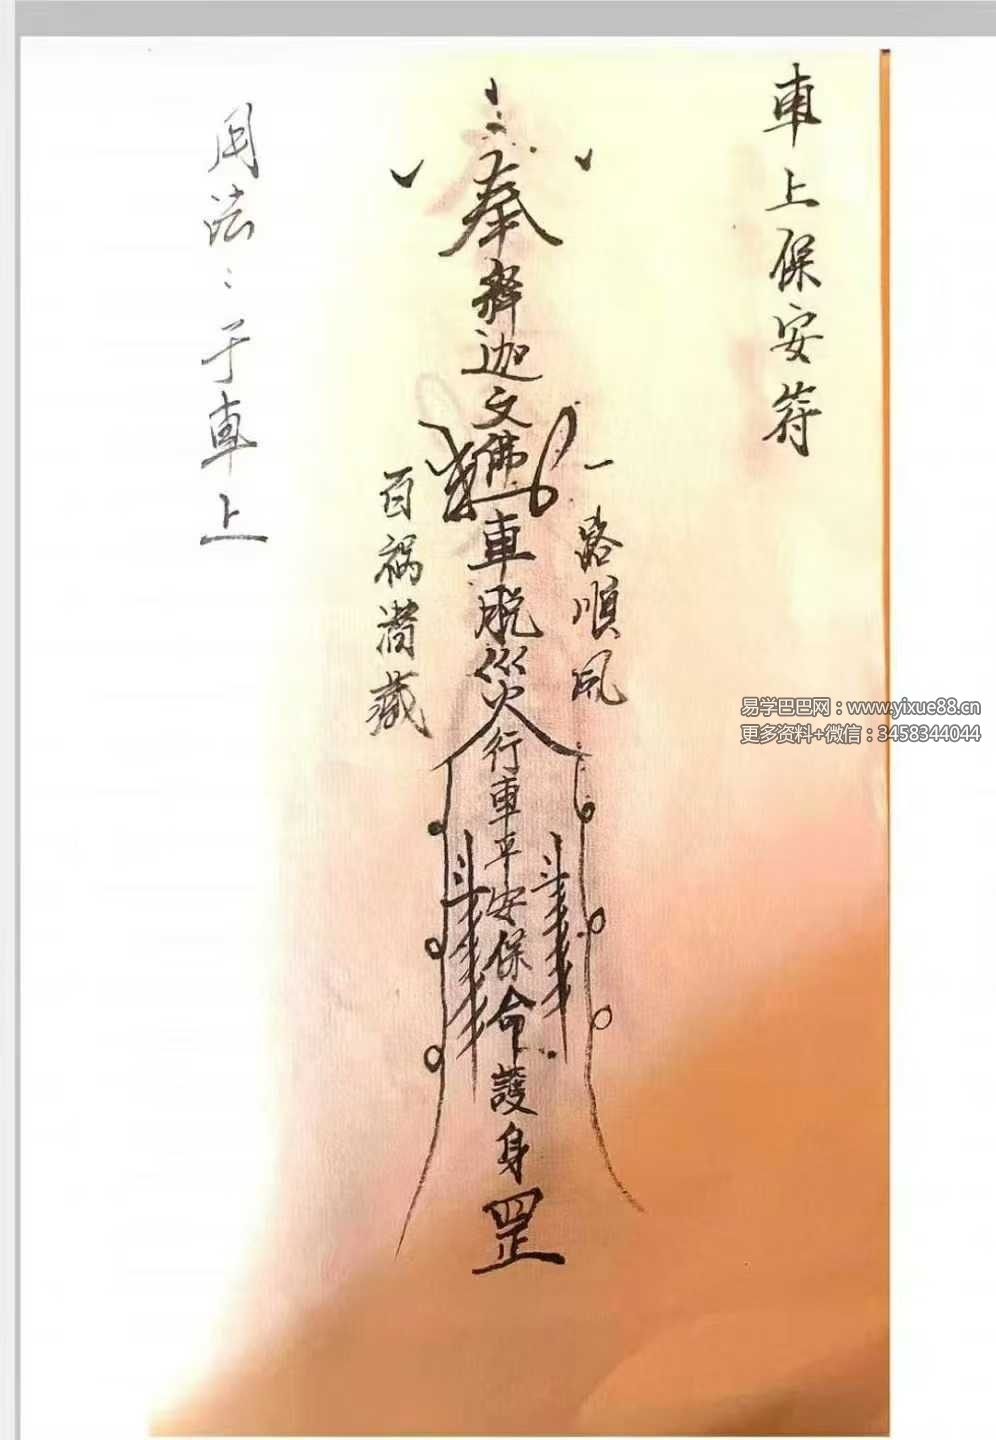 車上保安符
奉
釋迦文佛
車脱災
一路順風
百禍潛藏
行車平安保命護身
罡
用法：于車上
易学巴巴网：www.yixue88.cn
更多资料+微信：3458344044